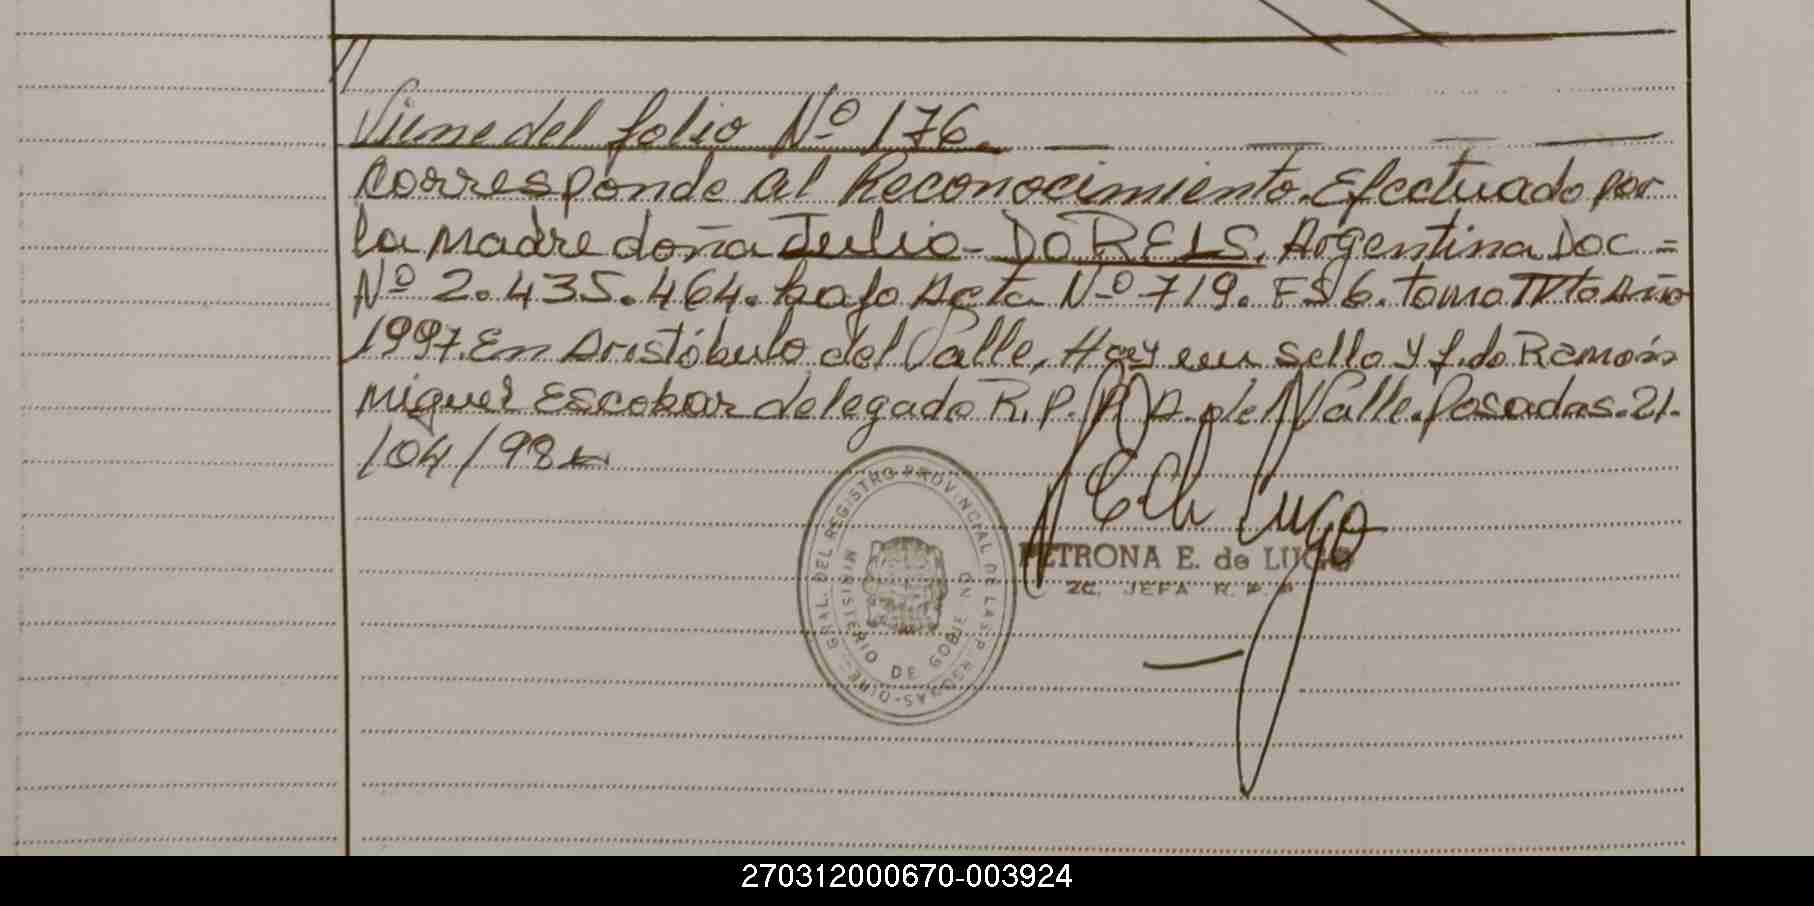 //
Viene del folio Nº 176.
Corresponde al Reconocimiento. Efectuado por
la madre doña Julio - DORELS, Argentina Doc =
Nº 2.435.464. bajo Acta Nº 719. FS 6. tomo IVto Año
1997. En Aristóbulo del Valle, Hay un sello y f.do Ramón
Miguel Escobar delegado R.P. A. del Valle. Posadas. 21.
/04/98
DIRE. GRAL. DEL REGISTRO PROVINCIAL DE LAS PERSONAS
MINISTERIO DE GOBIERNO
PETRONA E. de LUGO
JEFA R. P. P
270312000670-003924